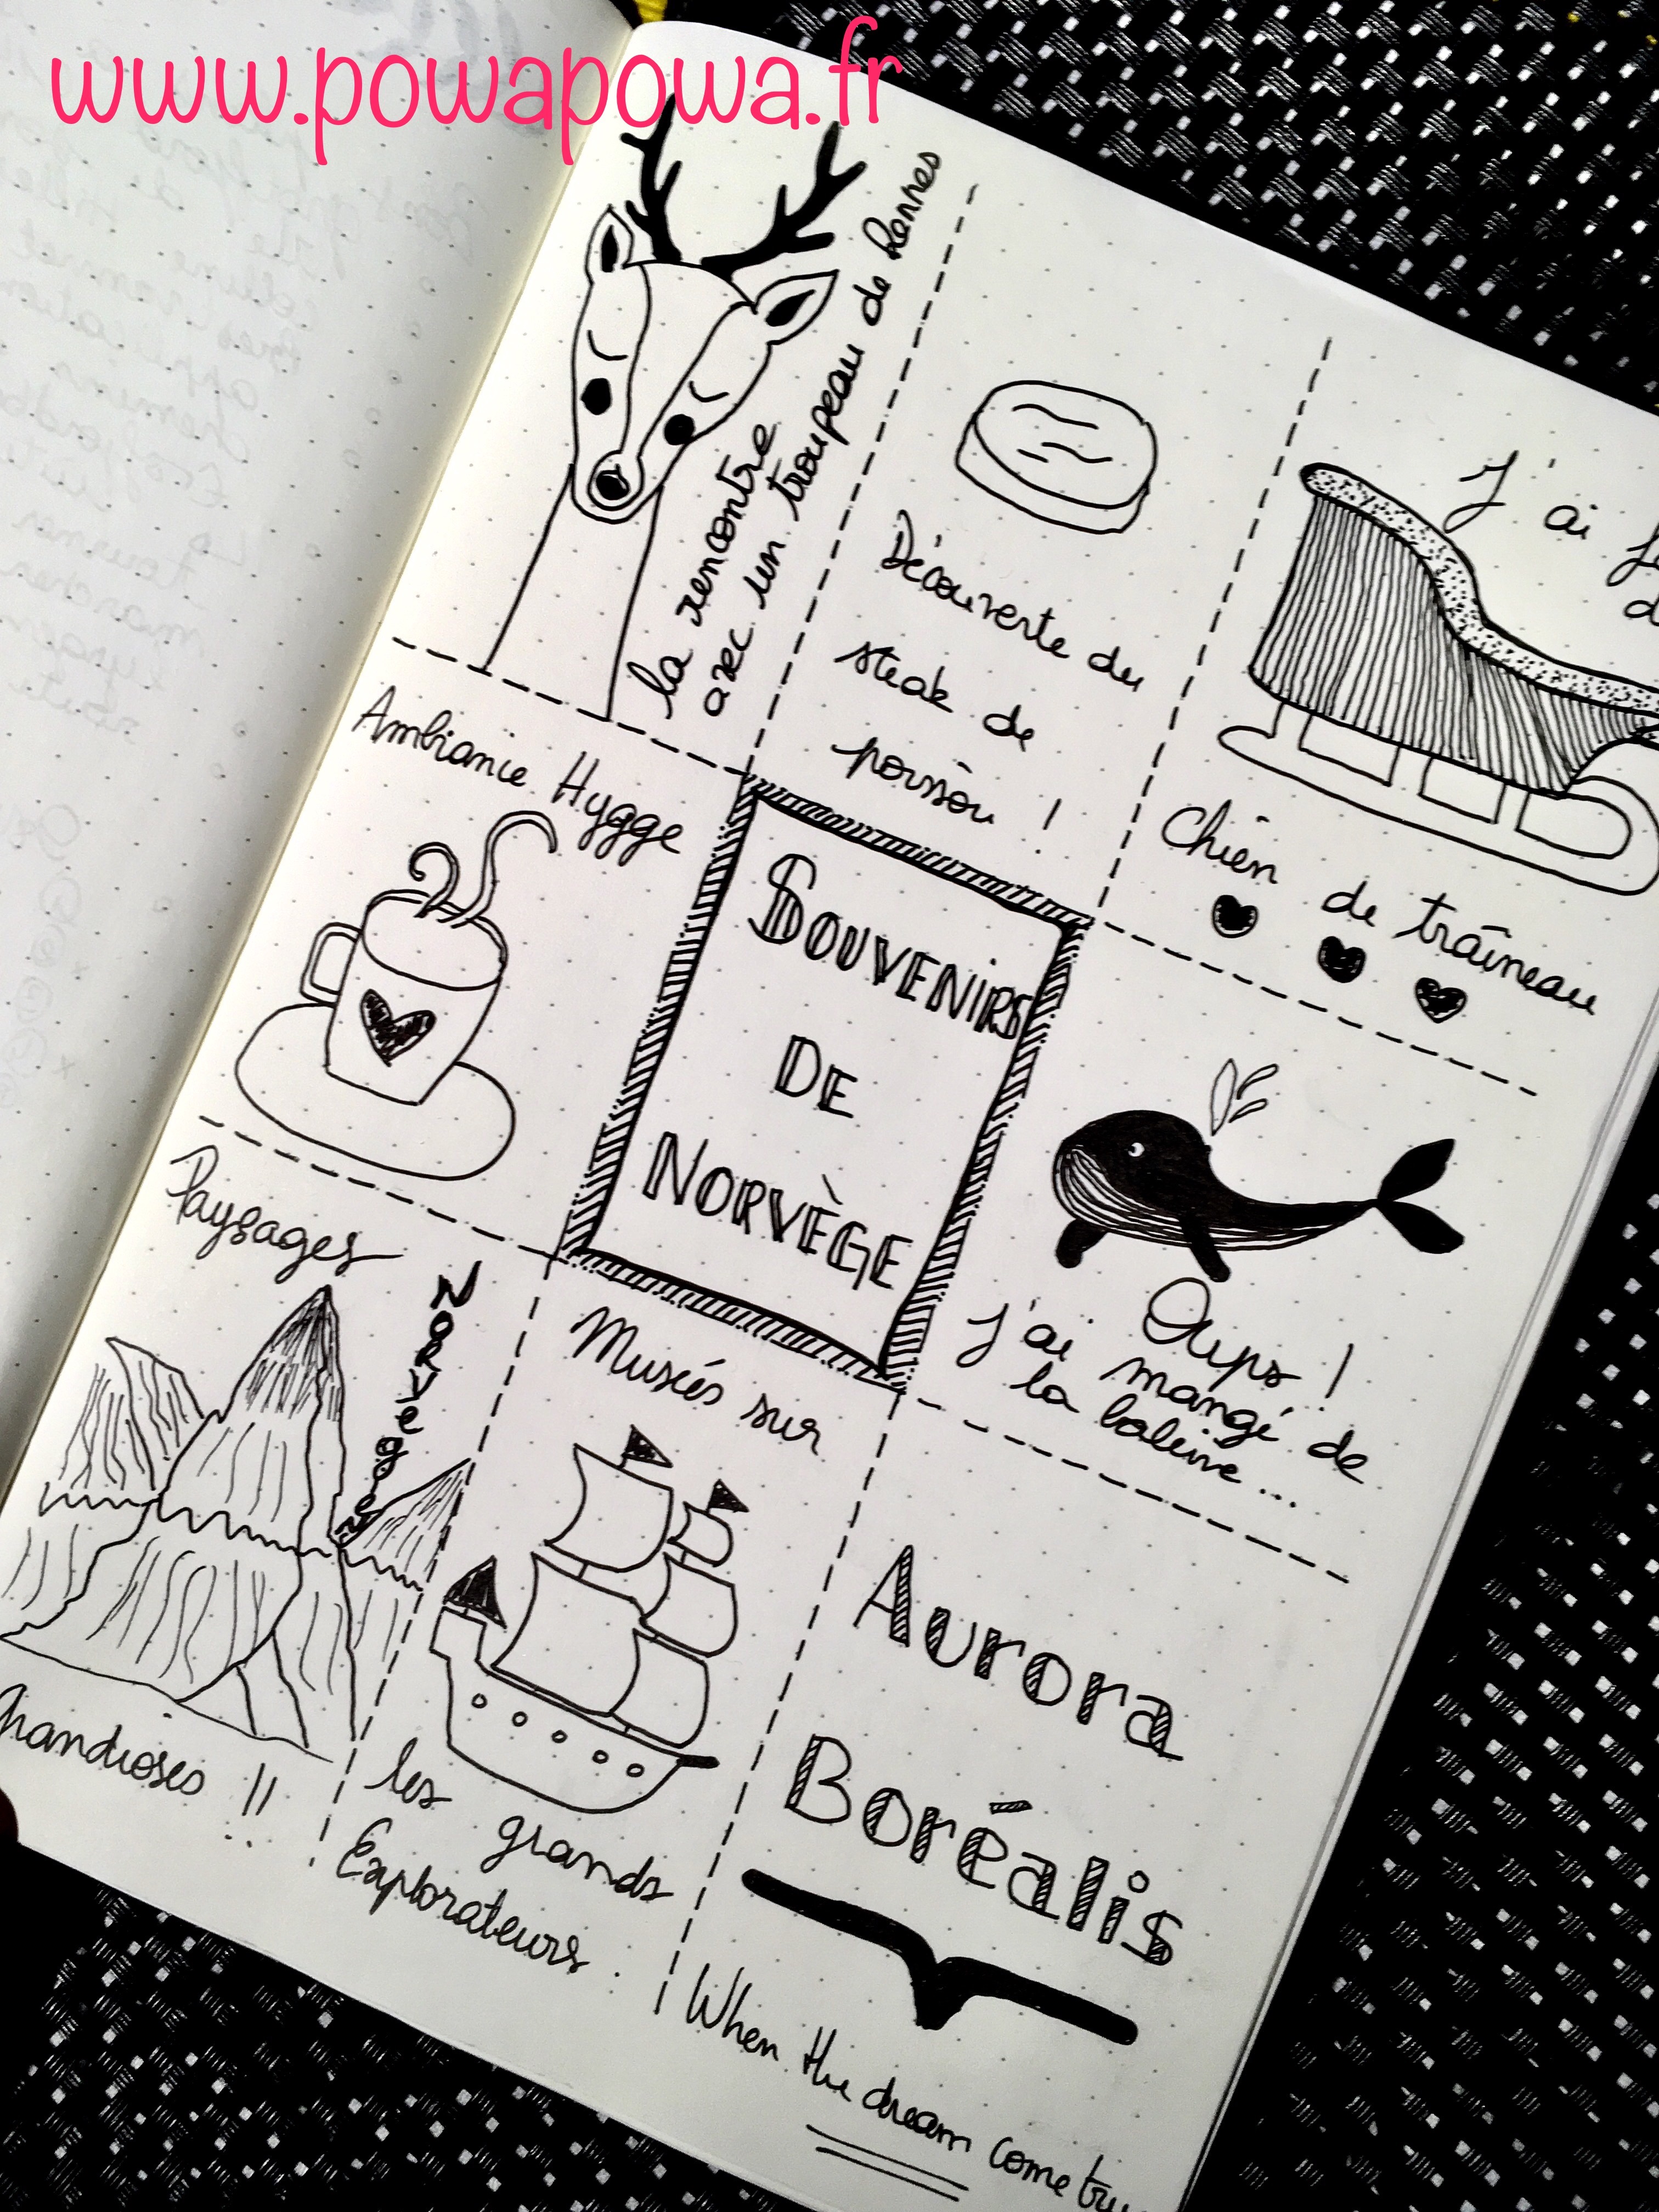 www.powapowa.fr
la rencontre
avec un troupeau de Rennes
Découverte du
steak de
poisson !
J'ai
Chien de traîneau
Ambiance Hygge
SOUVENIRS
DE
NORVÈGE
Oups !
J'ai mangé de
la baleine...
Paysages
Norvegiens
Grandioses !!
Musées sur
les grands
Explorateurs.
Aurora
Boréalis
When the dream come tru